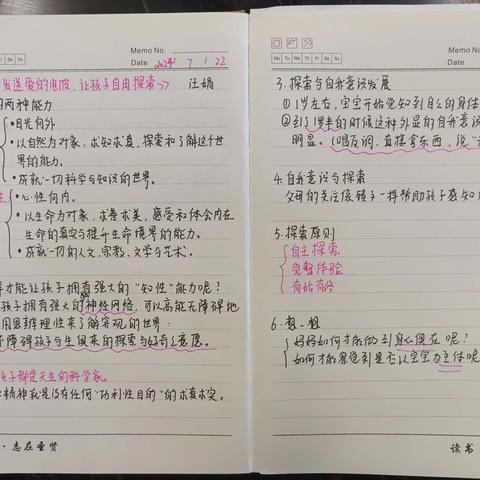 Memo No.
Date 2024 / 7 / 22
Fr Sa Su
发送爱的电波,让孩子自由探索>> 汪娟
两种能力
•目光向外
•以自然为对象,求知求真,探索和了解这个世
界的能力。
•成就一切科学与知识的世界。
•心性向内。
•以生命为对象,求善求美,感受和体会内在
生命的真实与提升生命境界的能力。
•成就一切的人文、宗教、文学与艺术。
才能让孩子拥有强大的"知性"能力呢?
孩子拥有强大的神经网络,可以高能无障碍地
用思辨理性来了解客观的世界:
障碍孩子与生俱来的探索与好奇心意愿。
孩子都是天生的科学家。
精神就是没有任何"功利性目的"的求真求实。
·志在圣贤
Memo No.
Date
Mo Tu We Th Fr Sa Su
3.探索与自我意识发展
①1岁左右,宝宝开始觉知到自己的身体
②到1岁半的时候这种外显的自我意识
明显。(唱反调,直接拿东西,说"
4.自我意识与探索
父母的关注像镜子一样帮助孩子感知
5.探索原则
自主探索
完整体验
有始有终
6.想一想
妈妈如何才能做到身心俱在呢?
如何才能察觉到是否以宝宝为主体呢
读书